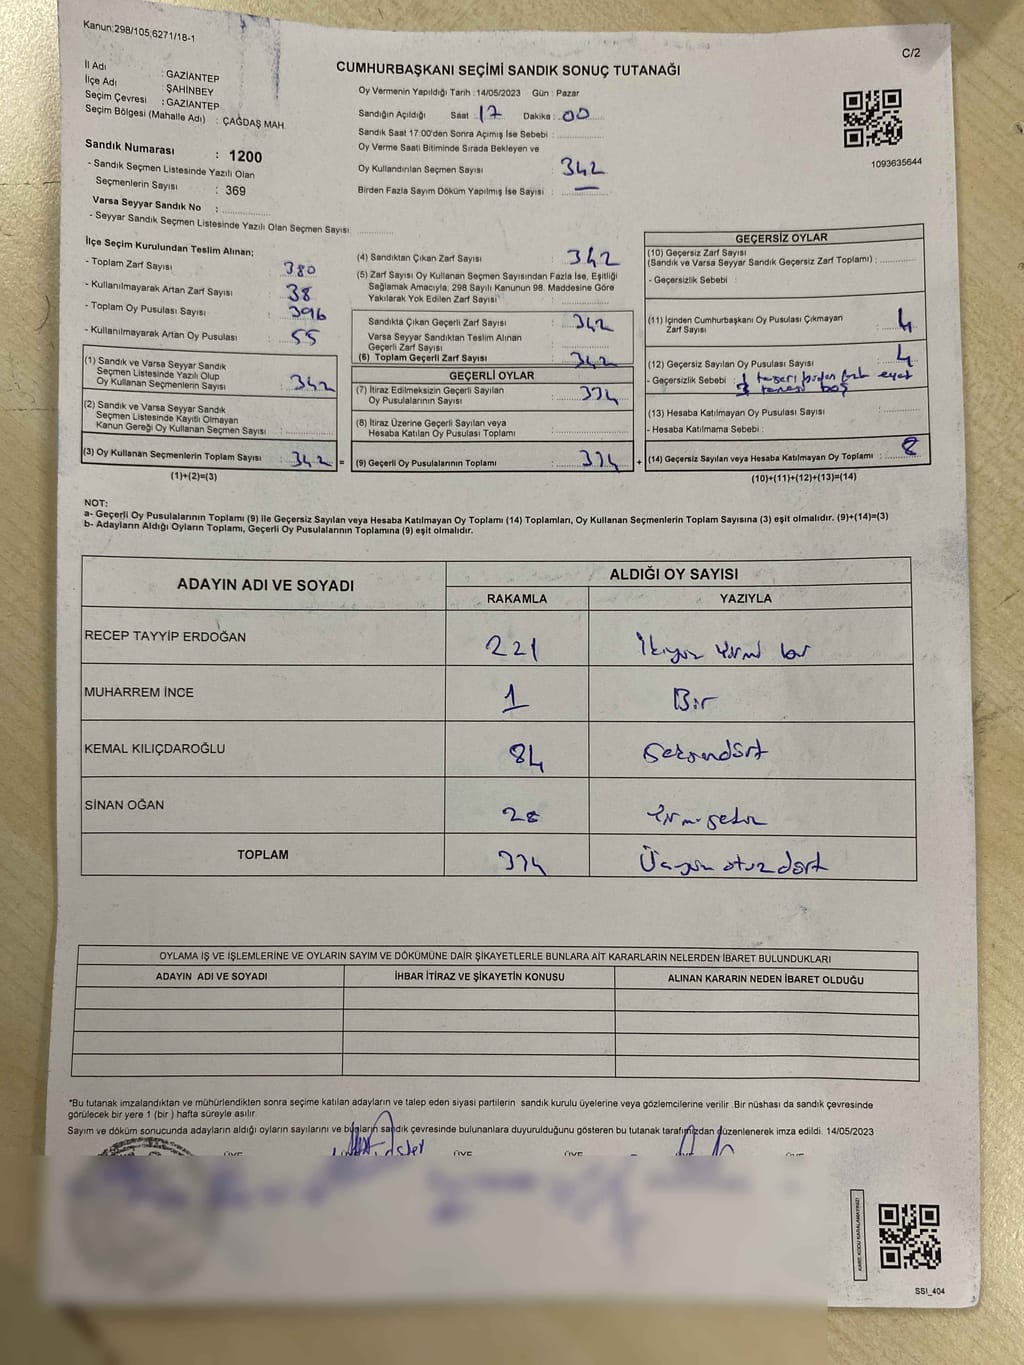 Kanun:298/105;6271/18-1
C/2
CUMHURBAŞKANI SEÇİMİ SANDIK SONUÇ TUTANAĞI
İl Adı : GAZİANTEP
İlçe Adı : ŞAHİNBEY
Seçim Çevresi : GAZİANTEP
Seçim Bölgesi (Mahalle Adı) : ÇAĞDAŞ MAH.
Sandık Numarası : 1200
- Sandık Seçmen Listesinde Yazılı Olan
Seçmenlerin Sayısı : 369
Varsa Seyyar Sandık No :
- Seyyar Sandık Seçmen Listesinde Yazılı Olan Seçmen Sayısı:
Oy Vermenin Yapıldığı Tarih : 14/05/2023 Gün : Pazar
Sandığın Açıldığı Saat : 17 Dakika : 00
Sandık Saat 17:00'den Sonra Açımış İse Sebebi :
Oy Verme Saati Bitiminde Sırada Bekleyen ve
Oy Kullandırılan Seçmen Sayısı : 342
Birden Fazla Sayım Döküm Yapılmış İse Sayısı : —
1093635644
İlçe Seçim Kurulundan Teslim Alınan;
- Toplam Zarf Sayısı : 380
- Kullanılmayarak Artan Zarf Sayısı : 38
- Toplam Oy Pusulası Sayısı : 396
- Kullanılmayarak Artan Oy Pusulası : 55
(1) Sandık ve Varsa Seyyar Sandık
Seçmen Listesinde Yazılı Olup
Oy Kullanan Seçmenlerin Sayısı : 342
(2) Sandık ve Varsa Seyyar Sandık
Seçmen Listesinde Kayıtlı Olmayan
Kanun Gereği Oy Kullanan Seçmen Sayısı :
(3) Oy Kullanan Seçmenlerin Toplam Sayısı : 342 =
(1)+(2)=(3)
(4) Sandıktan Çıkan Zarf Sayısı : 342
(5) Zarf Sayısı Oy Kullanan Seçmen Sayısından Fazla İse, Eşitliği
Sağlamak Amacıyla; 298 Sayılı Kanunun 98. Maddesine Göre
Yakılarak Yok Edilen Zarf Sayısı :
Sandıkta Çıkan Geçerli Zarf Sayısı : 342
Varsa Seyyar Sandıktan Teslim Alınan
Geçerli Zarf Sayısı :
(6) Toplam Geçerli Zarf Sayısı : 342
GEÇERLİ OYLAR
(7) İtiraz Edilmeksizin Geçerli Sayılan
Oy Pusulalarının Sayısı : 334
(8) İtiraz Üzerine Geçerli Sayılan veya
Hesaba Katılan Oy Pusulası Toplamı :
(9) Geçerli Oy Pusulalarının Toplamı : 334 +
GEÇERSİZ OYLAR
(10) Geçersiz Zarf Sayısı
(Sandık ve Varsa Seyyar Sandık Geçersiz Zarf Toplamı) :
- Geçersizlik Sebebi :
(11) İçinden Cumhurbaşkanı Oy Pusulası Çıkmayan
Zarf Sayısı : 4
(12) Geçersiz Sayılan Oy Pusulası Sayısı : 4
- Geçersizlik Sebebi : birden
3 tanesi boş
(13) Hesaba Katılmayan Oy Pusulası Sayısı :
- Hesaba Katılmama Sebebi :
(14) Geçersiz Sayılan veya Hesaba Katılmayan Oy Toplamı : 8
(10)+(11)+(12)+(13)=(14)
NOT:
a- Geçerli Oy Pusulalarının Toplamı (9) ile Geçersiz Sayılan veya Hesaba Katılmayan Oy Toplamı (14) Toplamları, Oy Kullanan Seçmenlerin Toplam Sayısına (3) eşit olmalıdır. (9)+(14)=(3)
b- Adayların Aldığı Oyların Toplamı, Geçerli Oy Pusulalarının Toplamına (9) eşit olmalıdır.
ADAYIN ADI VE SOYADI
ALDIĞI OY SAYISI
RAKAMLA YAZIYLA
RECEP TAYYİP ERDOĞAN 221 İkiyüz yirmi bir
MUHARREM İNCE 1 Bir
KEMAL KILIÇDAROĞLU 84 Seksendört
SİNAN OĞAN 28 Yirmisekiz
TOPLAM 334 Üçyüz otuz dört
OYLAMA İŞ VE İŞLEMLERİNE VE OYLARIN SAYIM VE DÖKÜMÜNE DAİR ŞİKAYETLERLE BUNLARA AİT KARARLARIN NELERDEN İBARET BULUNDUKLARI
ADAYIN ADI VE SOYADI İHBAR İTİRAZ VE ŞİKAYETİN KONUSU ALINAN KARARIN NEDEN İBARET OLDUĞU
*Bu tutanak imzalandıktan ve mühürlendikten sonra seçime katılan adayların ve talep eden siyasi partilerin sandık kurulu üyelerine veya gözlemcilerine verilir .Bir nüshası da sandık çevresinde
görülecek bir yere 1 (bir ) hafta süreyle asılır.
Sayım ve döküm sonucunda adayların aldığı oyların sayılarını ve bunların sandık çevresinde bulunanlara duyurulduğunu gösteren bu tutanak tarafımızdan düzenlenerek imza edildi. 14/05/2023
KARE KODU KARALAMAYINIZ!
SSI_404